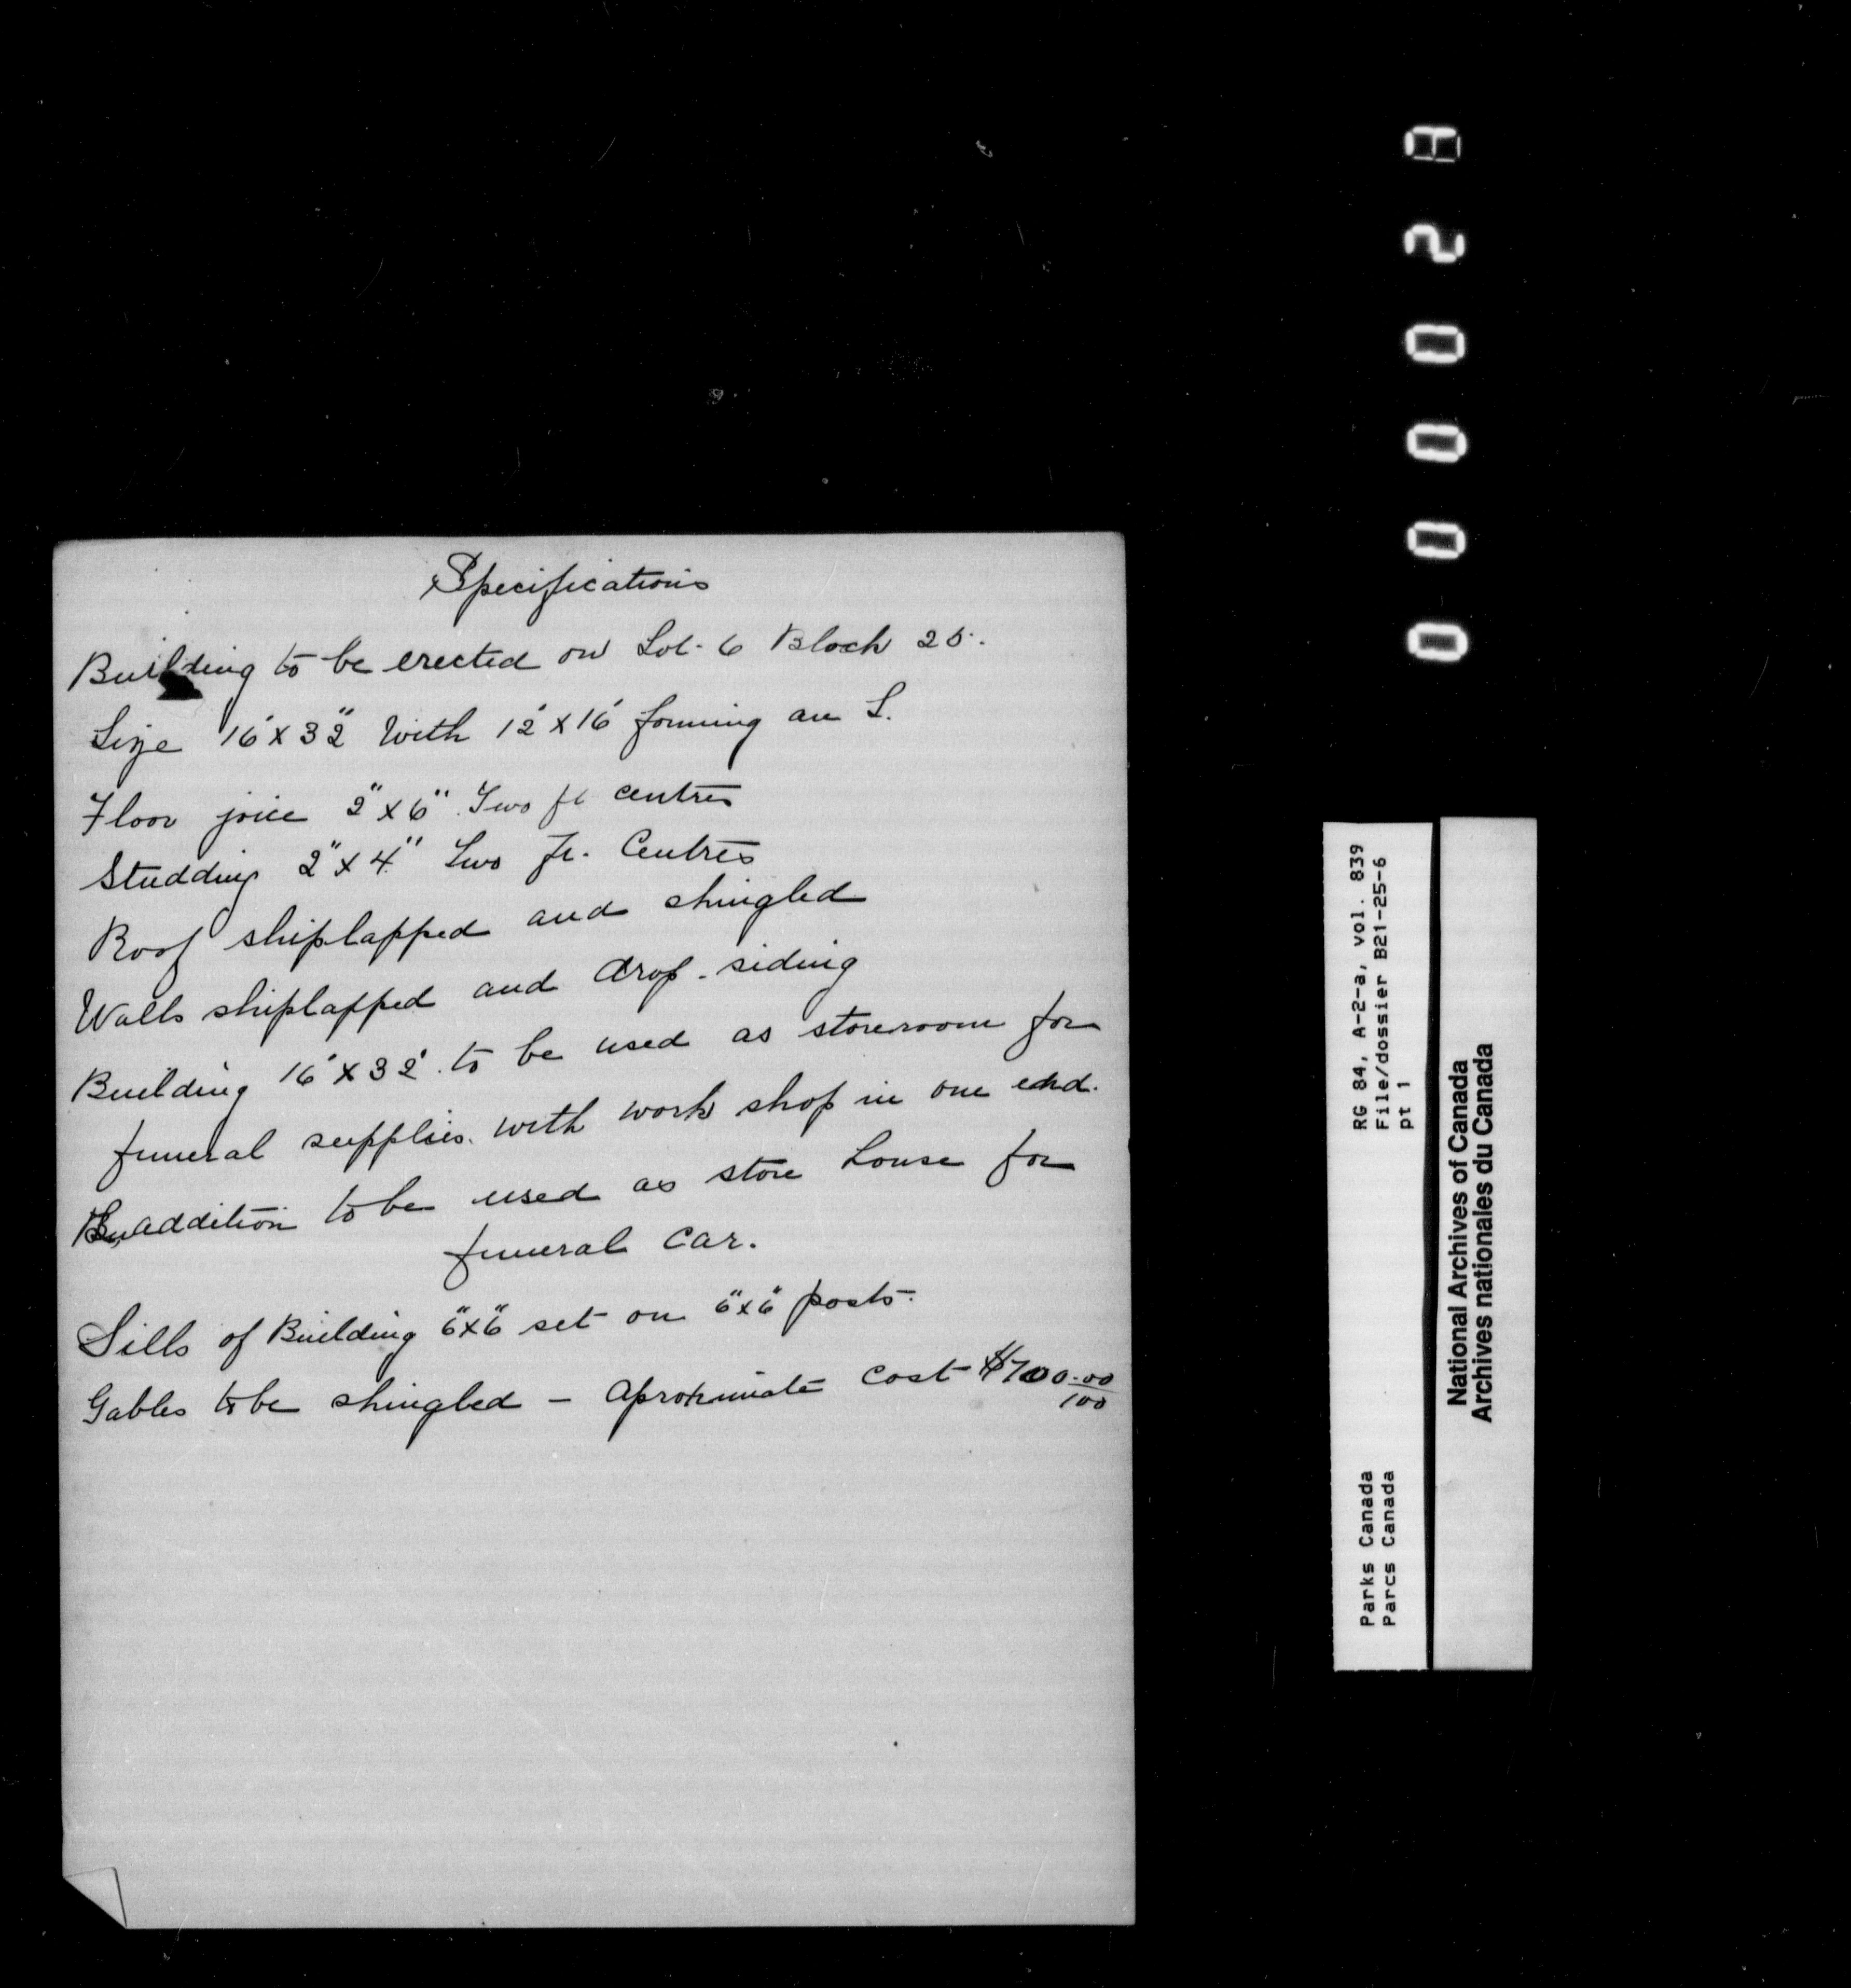 Specifications
Building to be erected on Lot. 6 Block 25.
Size 16'x32" With 12'x16' forming an L.
Floor joice 2"x6" Two ft centres
Studding 2"x4" Two Ft. Centres
Roof shiplapped and shingled
Walls shiplapped and drop-siding
Building 16'x32' to be used as storeroom for
funeral supplies. with work shop in one end.
addition to be used as store house for
funeral car.
Sills of Building 6"x6" set on 6"x6" posts.
Gables to be shingled – Aproximate Cost $700.00/100
000029
RG 84, A-2-a, vol. 839
File/dossier B21-25-6
pt 1
Parks Canada
Parcs Canada
National Archives of Canada
Archives nationales du Canada